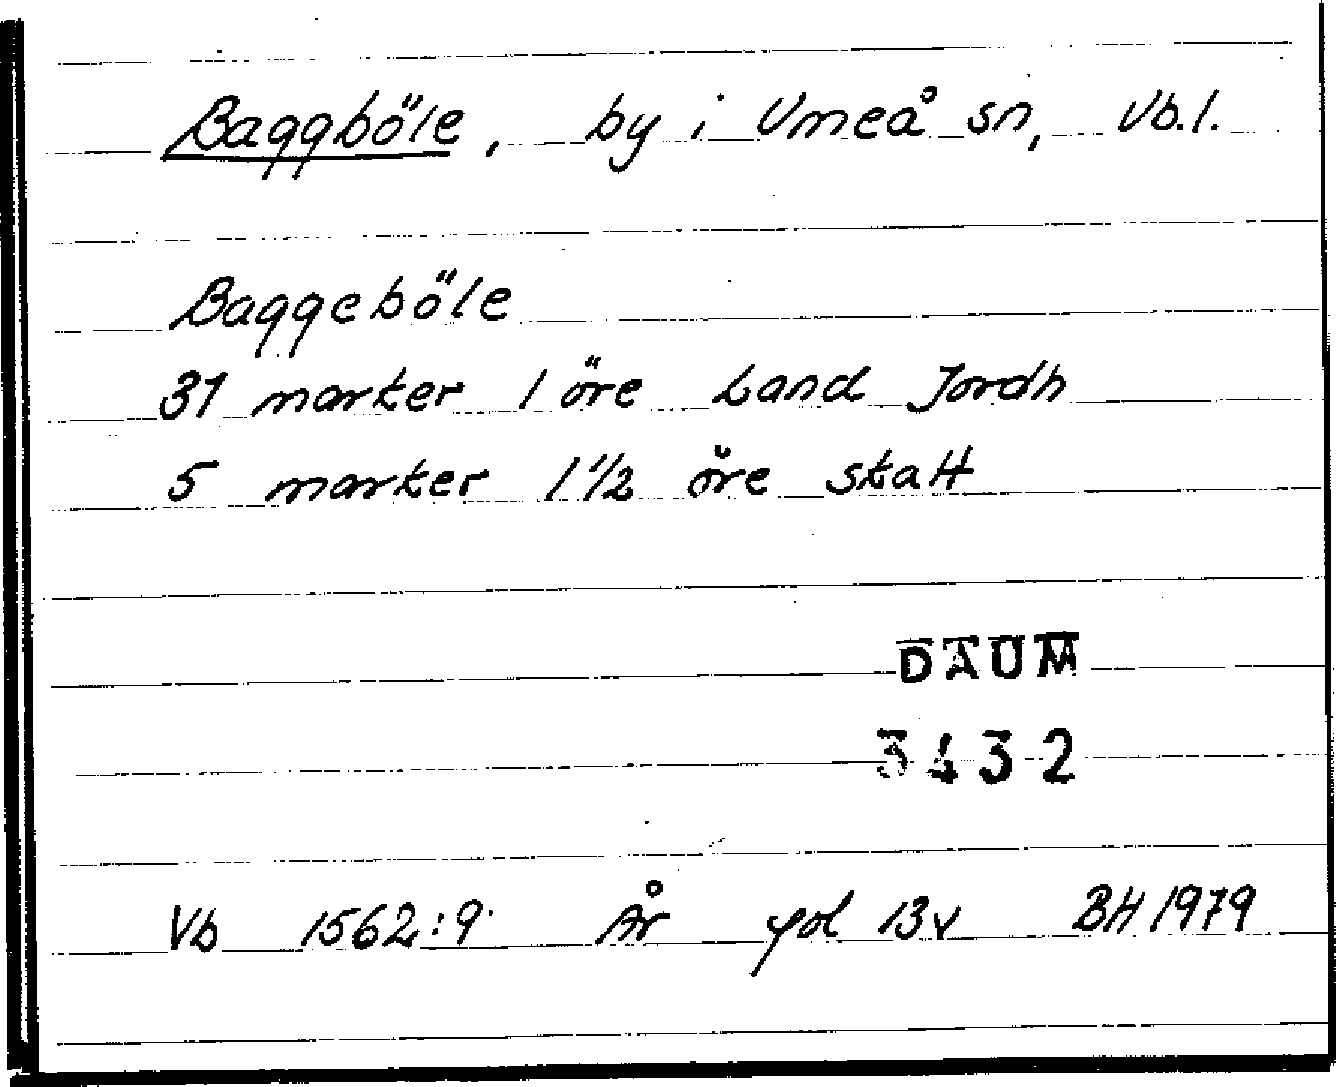 Baggböle, by i Umeå sn, Vb.l.
Baggeböle
31 marker 1 öre Land Jordh
5 marker 1 1/2 öre skatt
DAUM
3432
Vb 1562:9 År fol 13v BH 1979